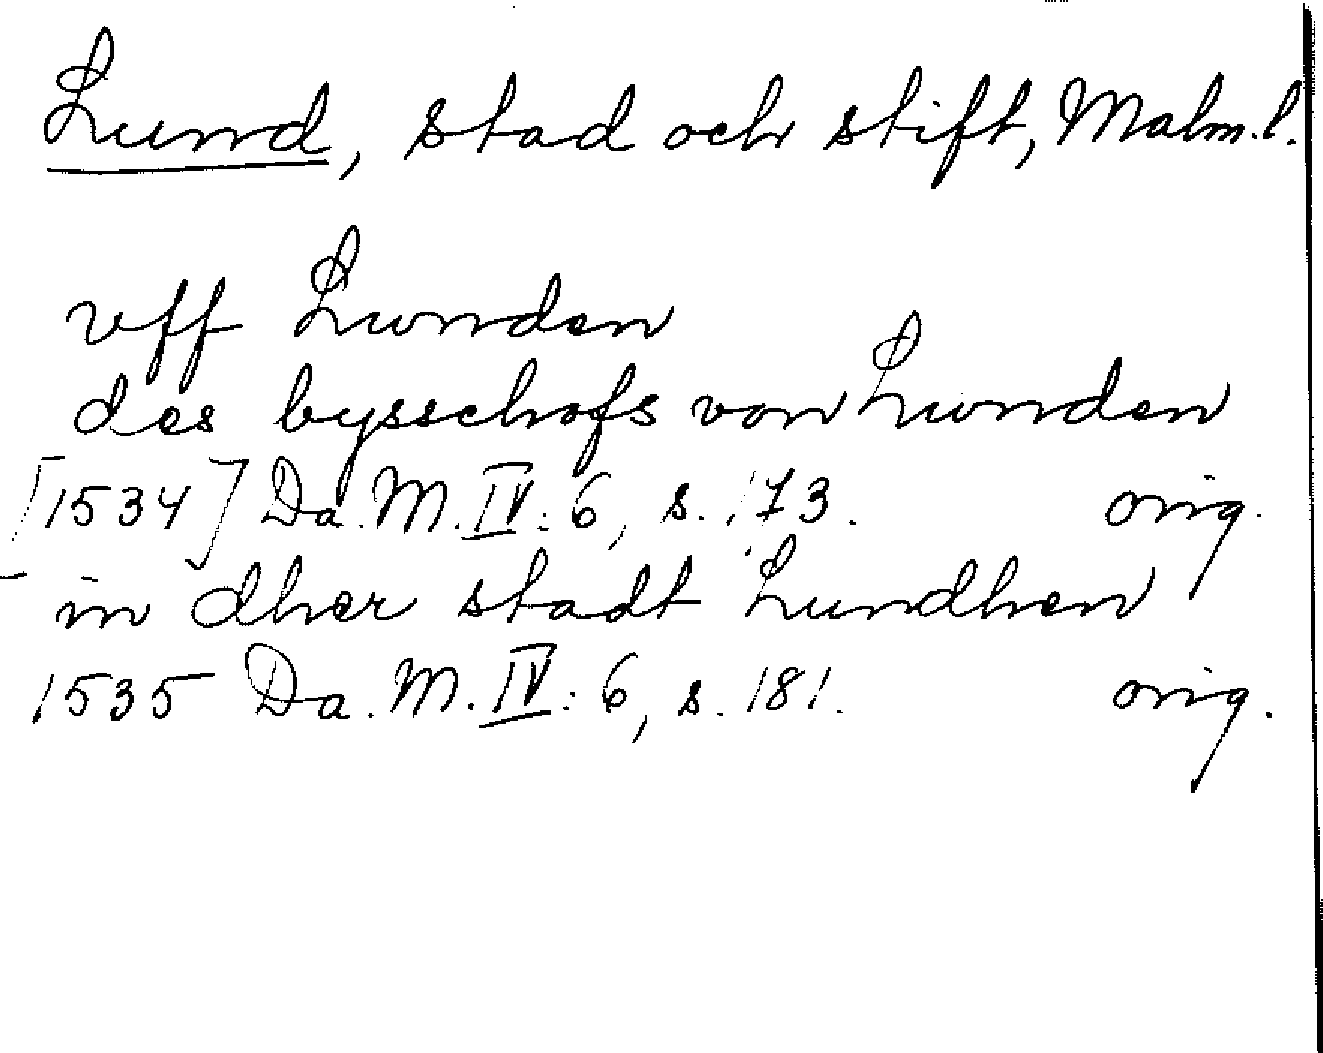 Lund, stad och stift, Malm.l.
vff Lunden
des bysschofs von Lunden
[1534] Da. M. IV: 6, s. 173. orig.
in dher stadt Lundhen
1535 Da. M. IV: 6, s. 181. orig.